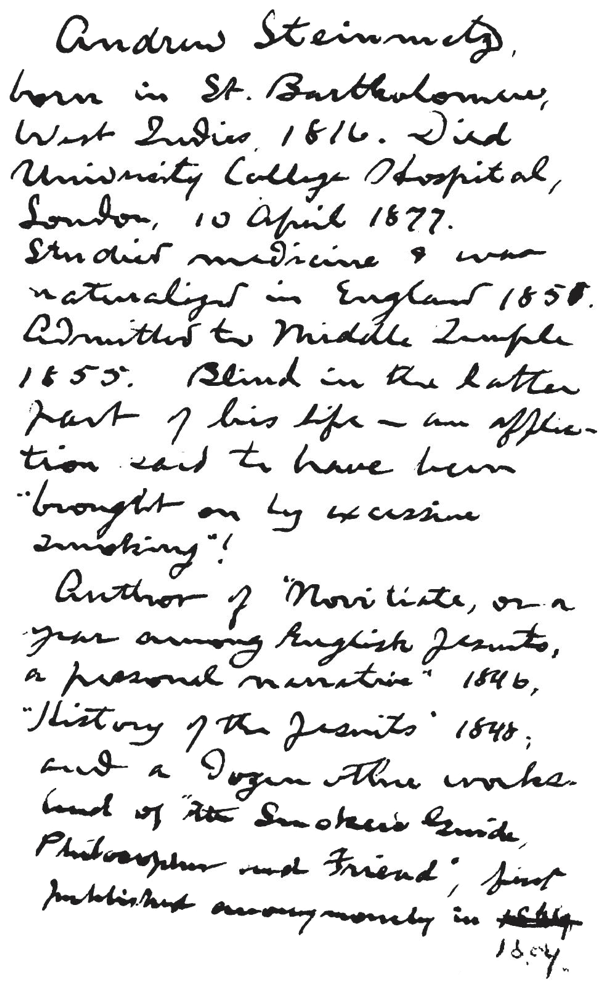 Andrew Steinmetz,
born in St. Bartholomew,
West Indies, 1816. Died
University College Hospital,
London, 10 April 1877.
Studied medicine & was
naturalized in England 185
Admitted to Middle Temple
1855. Blind in the latter
part of his life – an afflic-
tion said to have been
"brought on by excessive
smoking"!
Author of "Novitiate, or a
year among English Jesuits,
a personal narrative" 1846,
"History of the Jesuits" 1848;
and a dozen other works.
and of "the Smoker's Guide,
Philosopher and Friend", first
published anonymously in